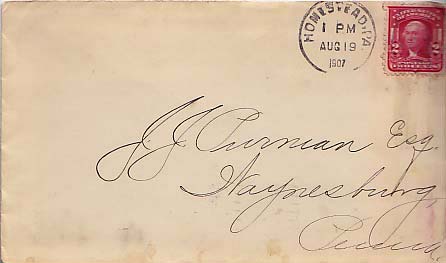 HOMESTEAD, PA.
1 PM
AUG 19
1907
J. J. Purman Esq.
Waynesburg
Penna.